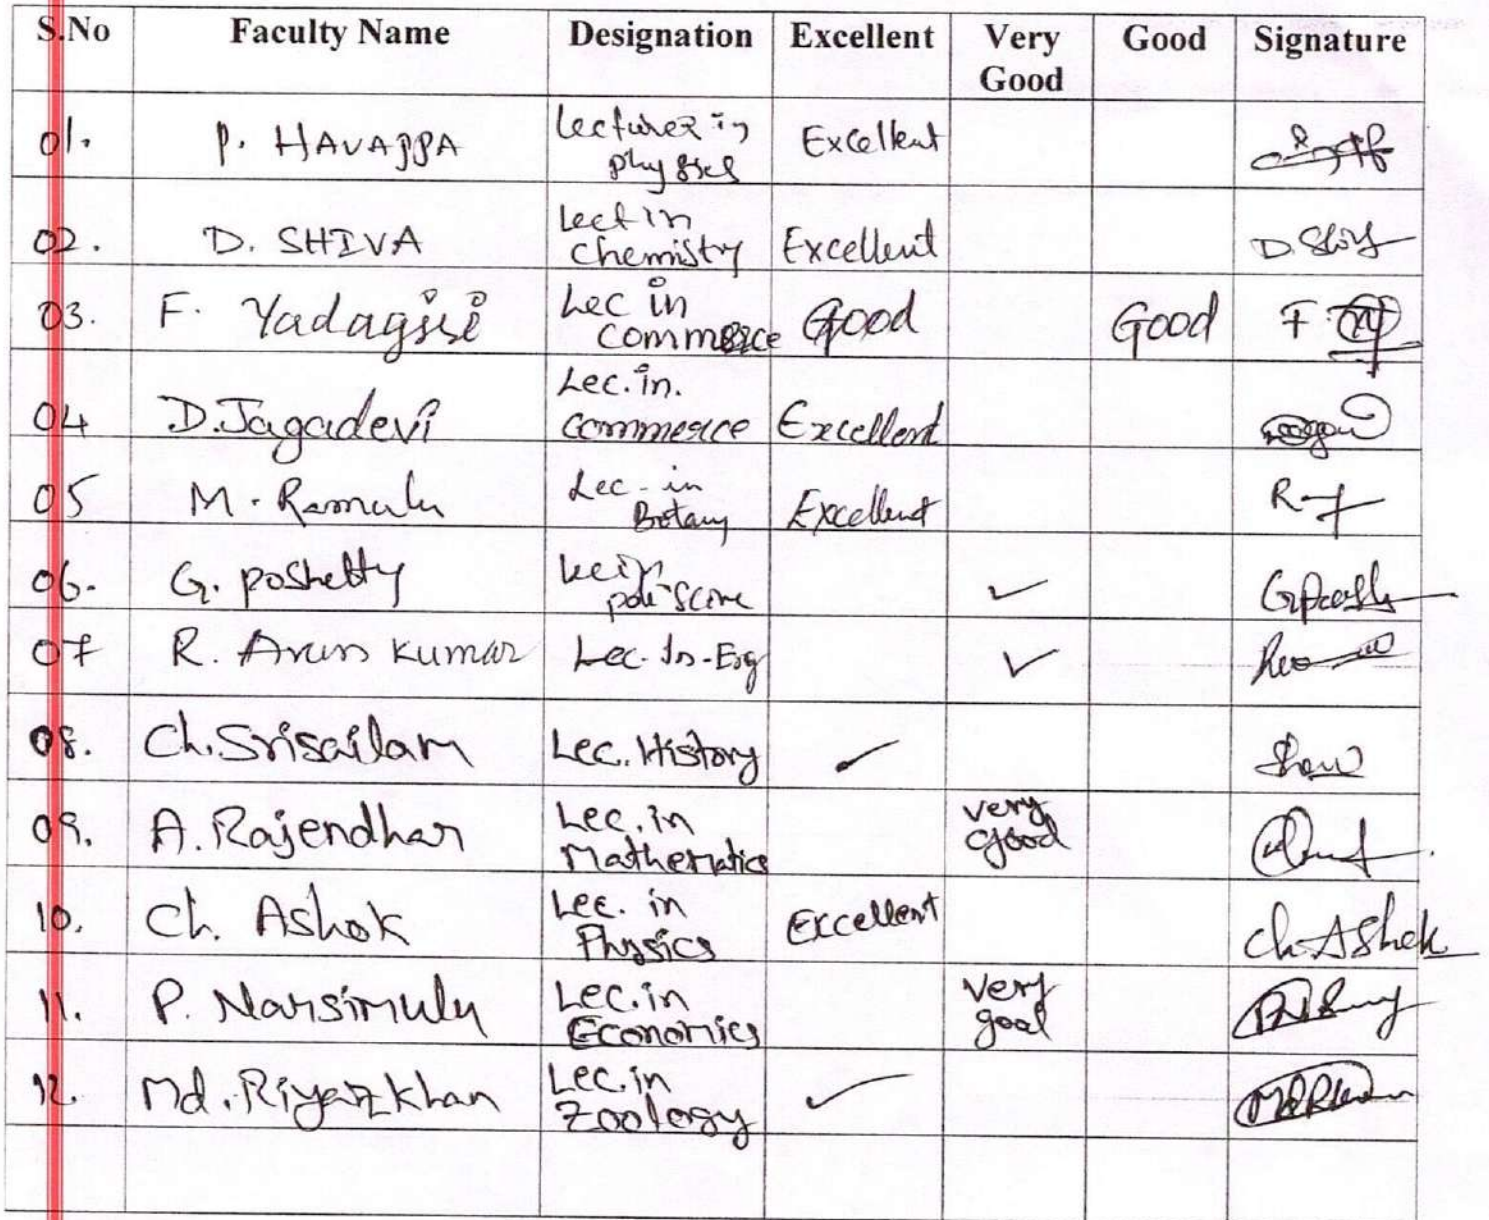 S.No Faculty Name Designation Excellent Very Good Good Signature
01. P. HAVAPPA Lecturer in Excellent
physics
02. D. SHIVA Lect in Chemistry Excellent D. Shiv
03. F. Yadagiri Lec in commerce Good Good F
04 D. Jagadevi Lec. in. commerce Excellent
05 M. Ramulu Lec - in Botany Excellent R
06. G. poshetty Lec in ✓
07 R. Arun kumar Lec. In - Eng ✓
08. Ch. Srisailam Lec. History ✓
09. A. Rajendhar Lec. in Mathematics very good
10. Ch. Ashok Lec. in Physics Excellent Ch. Ashok
11. P. Narsimulu Lec. in Economics very good
12. Md. Riyaz khan Lec. in Zoology ✓